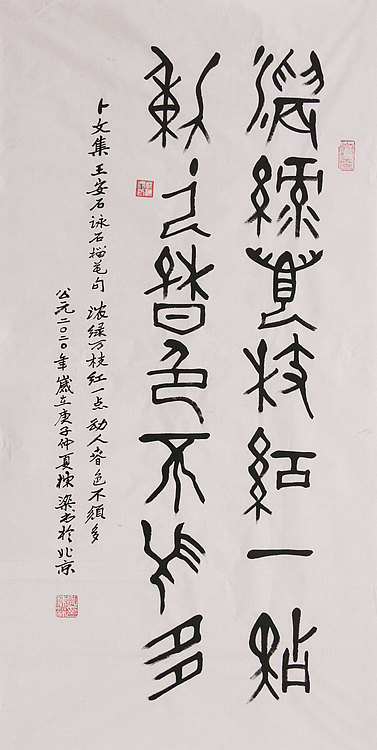 濃綠万枝紅一點
動人春色不須多
卜文集王安石咏石榴花句 浓绿万枝红一点 动人春色不須多
公元二〇二〇年嵗在庚子仲夏 梁书於北京